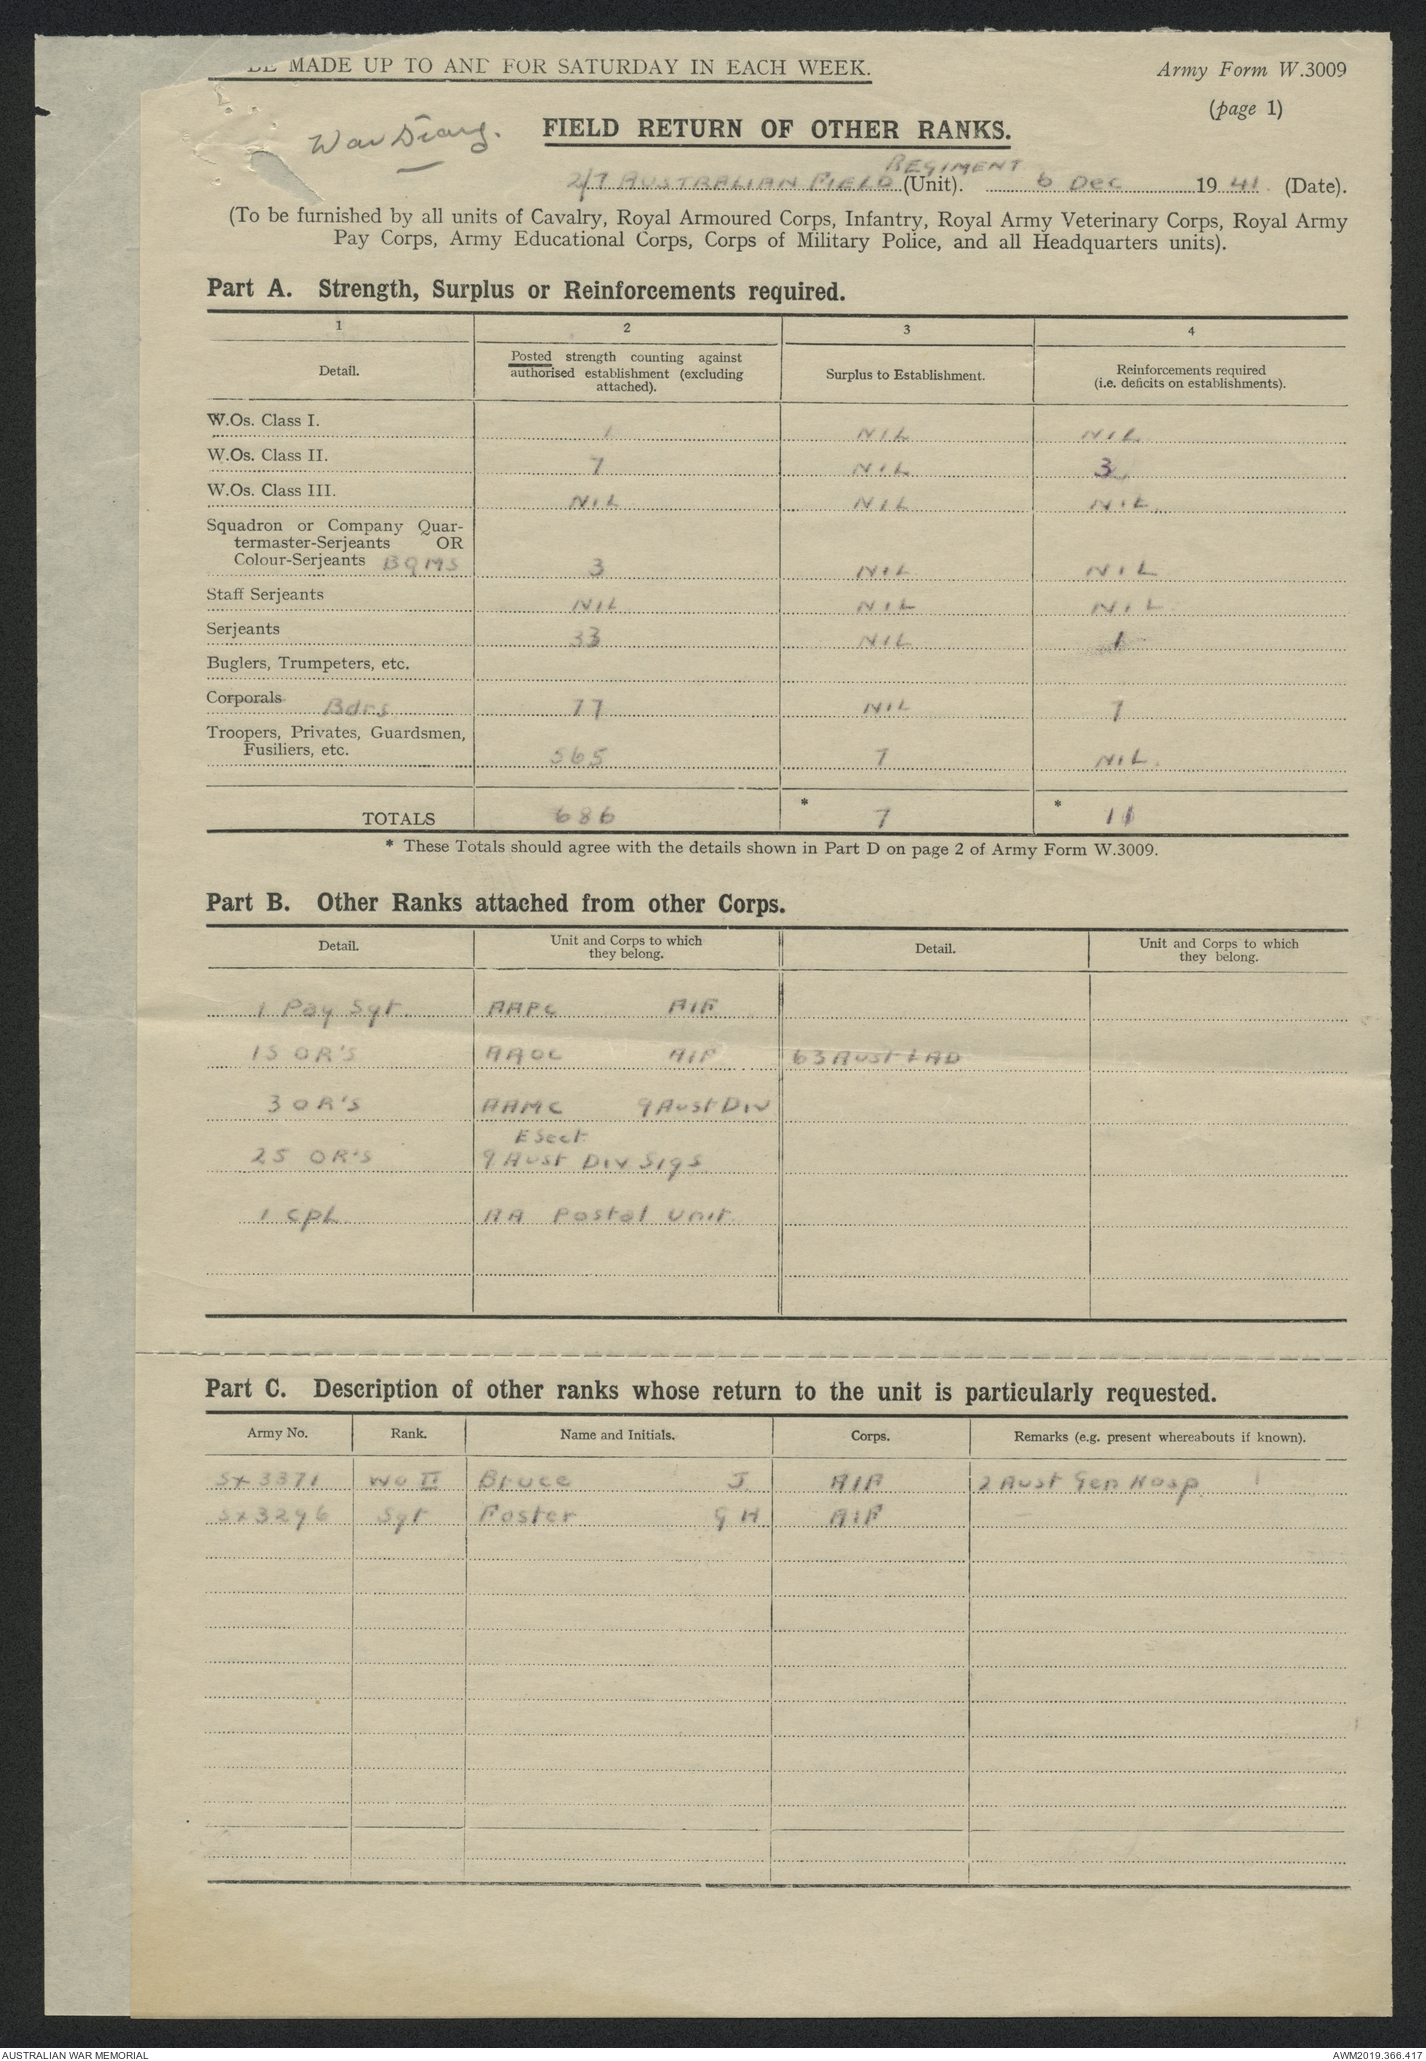 BE MADE UP TO AND FOR SATURDAY IN EACH WEEK.
Army Form W.3009
(page 1)
War Diary.
FIELD RETURN OF OTHER RANKS.
REGIMENT
2/7 AUSTRALIAN FIELD (Unit). 6 Dec 1941. (Date).
(To be furnished by all units of Cavalry, Royal Armoured Corps, Infantry, Royal Army Veterinary Corps, Royal Army
Pay Corps, Army Educational Corps, Corps of Military Police, and all Headquarters units).
Part A. Strength, Surplus or Reinforcements required.
1 2 3 4
Detail. Posted strength counting against authorised establishment (excluding attached). Surplus to Establishment. Reinforcements required (i.e. deficits on establishments).
W.Os. Class I. 1 NIL NIL
W.Os. Class II. 7 NIL 3
W.Os. Class III. NIL NIL NIL
Squadron or Company Quar-
termaster-Serjeants OR
Colour-Serjeants BQMS 3 NIL NIL
Staff Serjeants NIL NIL NIL
Serjeants 33 NIL 1
Buglers, Trumpeters, etc.
Corporals Bdrs 77 NIL 7
Troopers, Privates, Guardsmen,
Fusiliers, etc. 565 7 NIL.
TOTALS 686 * 7 * 11
* These Totals should agree with the details shown in Part D on page 2 of Army Form W.3009.
Part B. Other Ranks attached from other Corps.
Detail. Unit and Corps to which they belong. Detail. Unit and Corps to which they belong.
1 Pay Sgt. AAPC AIF
15 OR'S AAOC AIF 63 Aust LAD
3 OR'S AAMC 9 Aust Div
E Sect
25 OR'S 9 Aust Div Sigs
1 Cpl AA Postal Unit.
Part C. Description of other ranks whose return to the unit is particularly requested.
Army No. Rank. Name and Initials. Corps. Remarks (e.g. present whereabouts if known).
SX 3371 WO II Bruce J. AIF 2 Aust Gen Hosp
SX3296 Sgt Foster G H AIF —
AUSTRALIAN WAR MEMORIAL
AWM2019.366.417